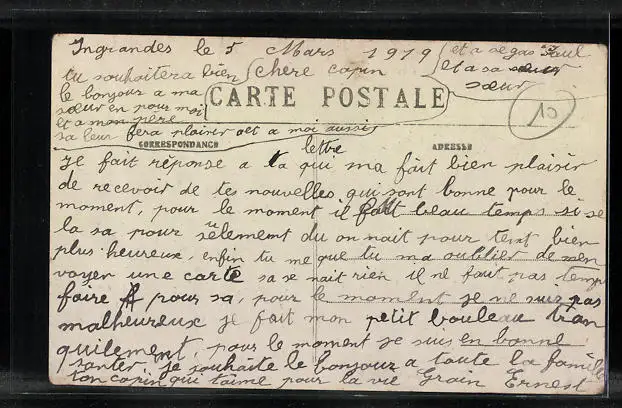 Ingrandes le 5 Mars 1919
Chère copin
et a segas Paul
et a sa
sœur
tu souhaitera bien
le bonjour a ma
sœur en pour moi
et a mon père
sa leur fera plaisir et a moi aussi
CARTE POSTALE
10
CORRESPONDANCE
ADRESSE
lettre
Je fait réponse a ta qui ma fait bien plaisir
de recevoir de tes nouvelles qui sont bonne pour le
moment, pour le moment il fait beau temps si se
la sa pour seulement du on nait pour tent bien
plus heureux, enfin tu me que tu ma oublier de men
voyer une carte sa se nait rien il ne faut pas temp
faire pour sa, pour le moment je ne suis pas
malheureux je fait mon petit bouleau tran
quilement, pour le moment je suis en bonne
santer je souhaite le bonjour a toute la famille
ton copin qui taime pour la vie Grain Ernest